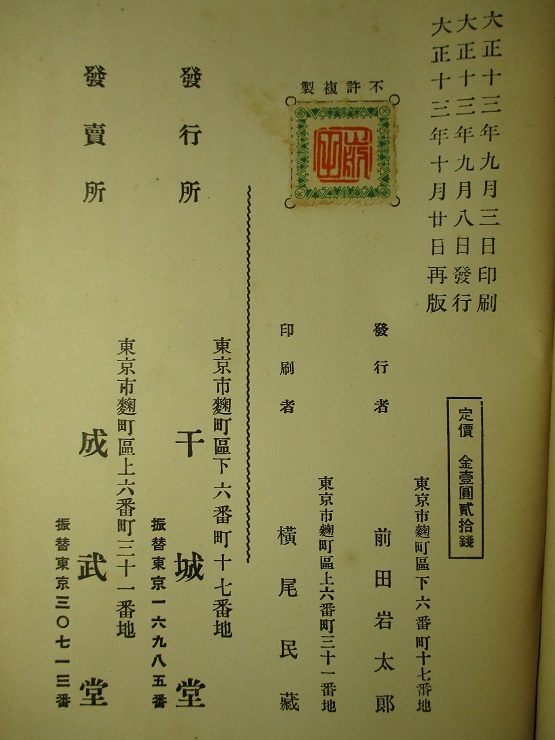 大正十三年九月三日印刷
大正十三年九月八日發行
大正十三年十月廿日再版
定價　金壹圓貳拾錢
不許複製
東京市麴町區下六番町十七番地
發行者　前田岩太郎
東京市麴町區上六番町三十一番地
印刷者　橫尾民藏
東京市麴町區下六番町十七番地
發行所　干城堂
振替東京一六九八五番
東京市麴町區上六番町三十一番地
發賣所　成武堂
振替東京三〇七一三番